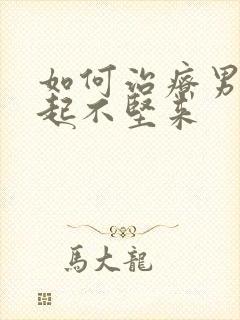 如何治療男
起不堅來
馬大龍